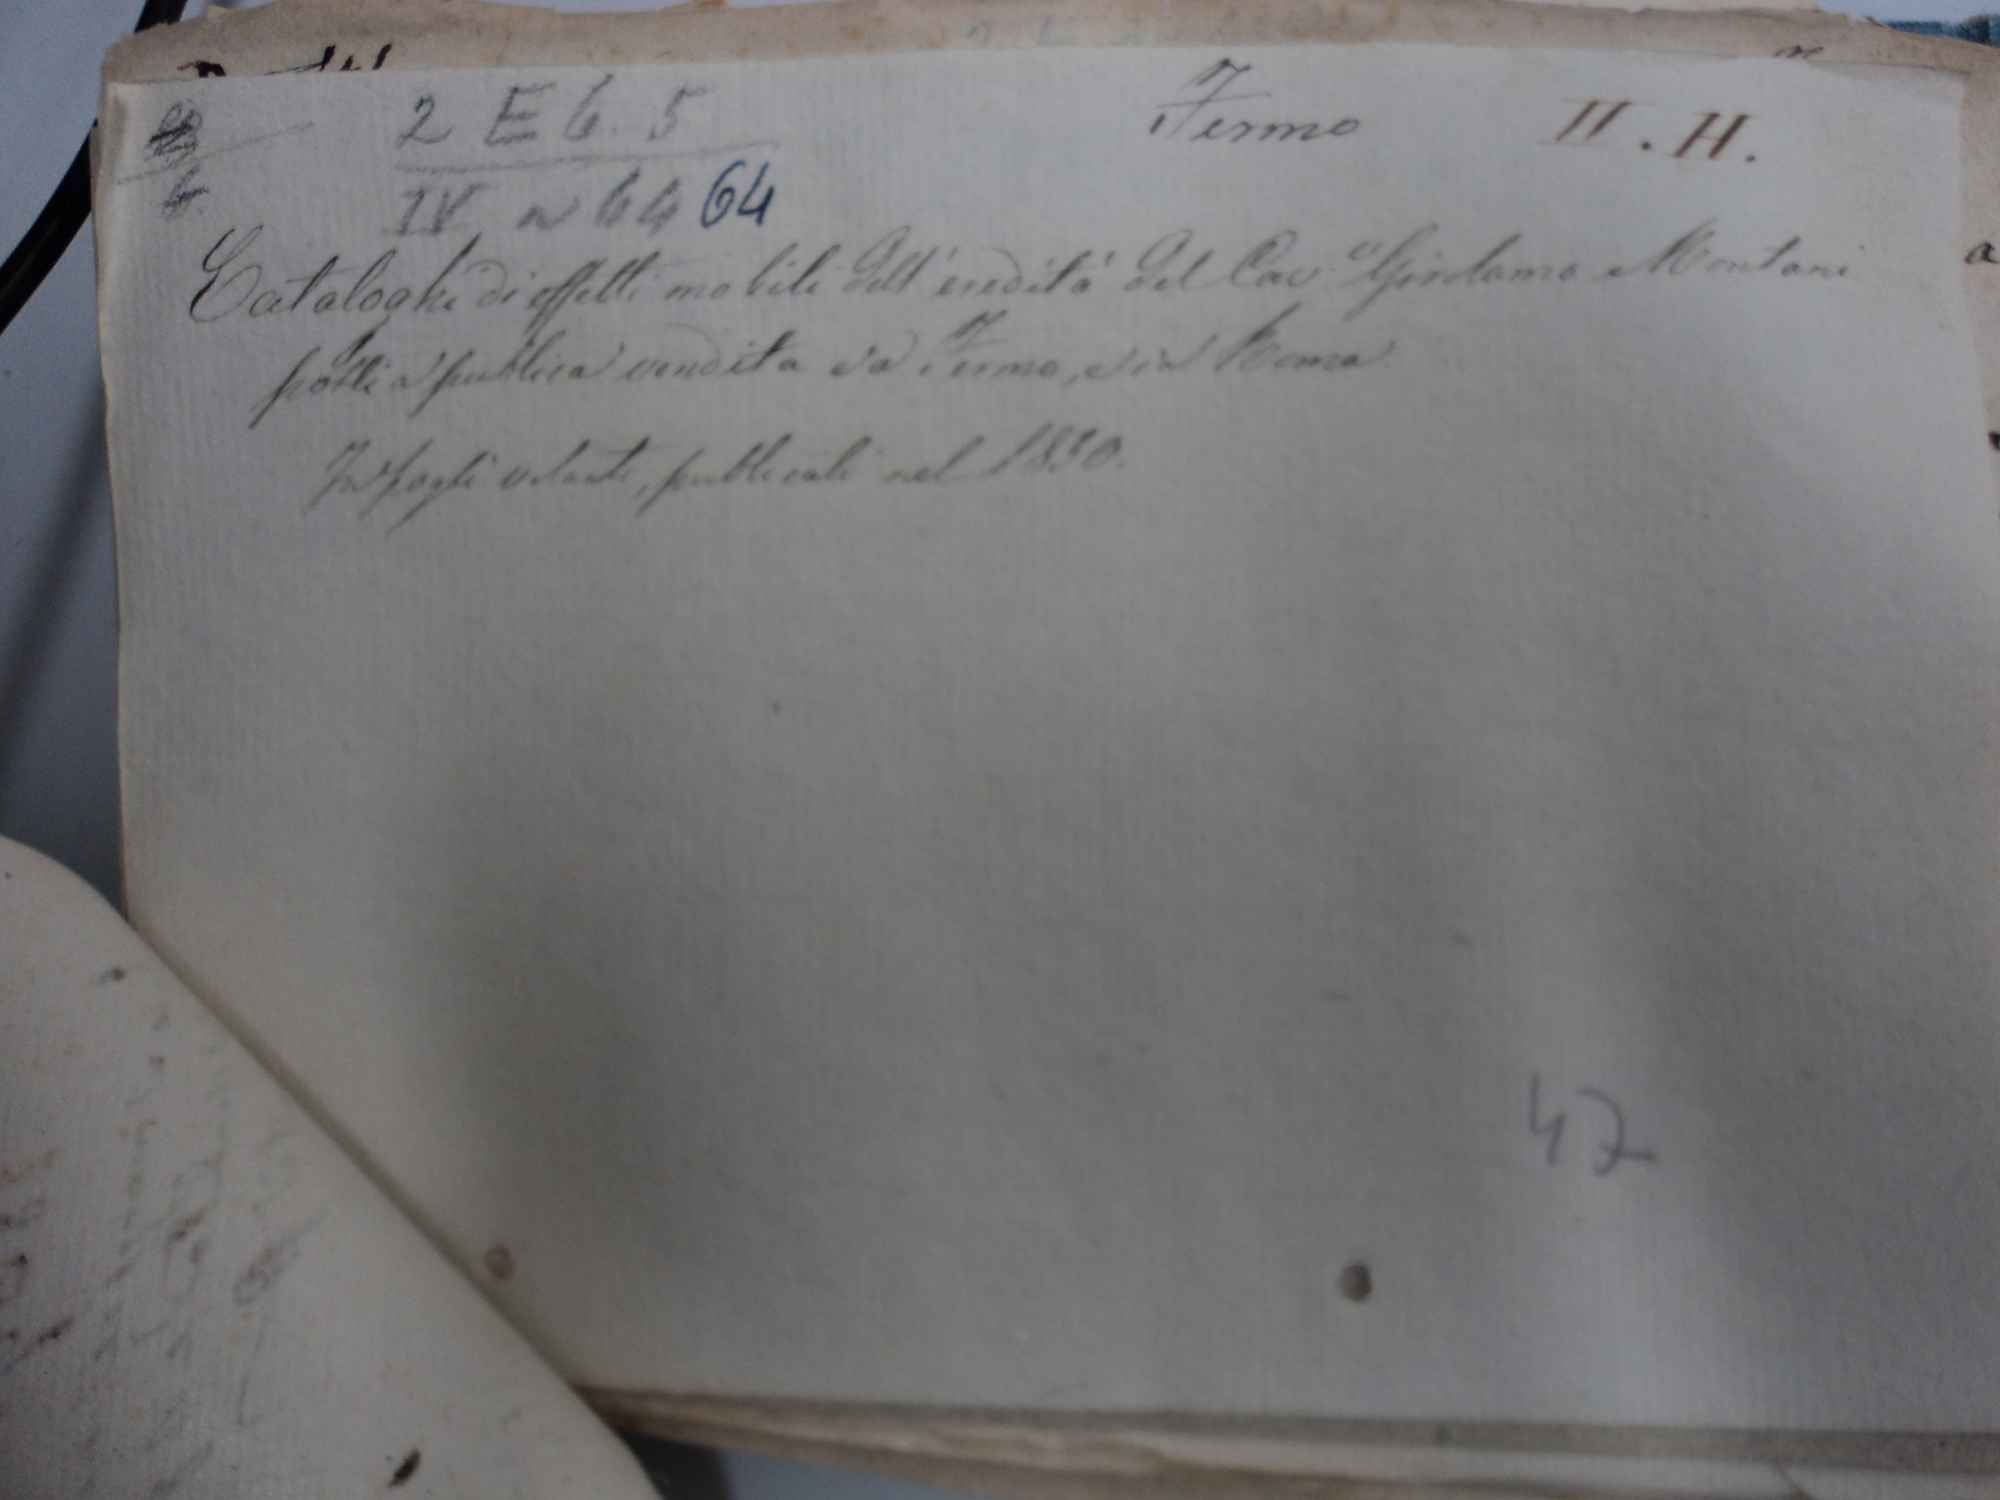 2 E 6. 5
Fermo
II. H.
IV n 64 64
Cataloghi di effetti mobili dell'eredità del Cav. Girolamo Montani
posti a publica vendita in Fermo, e in Roma
In fogli volanti, pubblicati nel 1830.
47